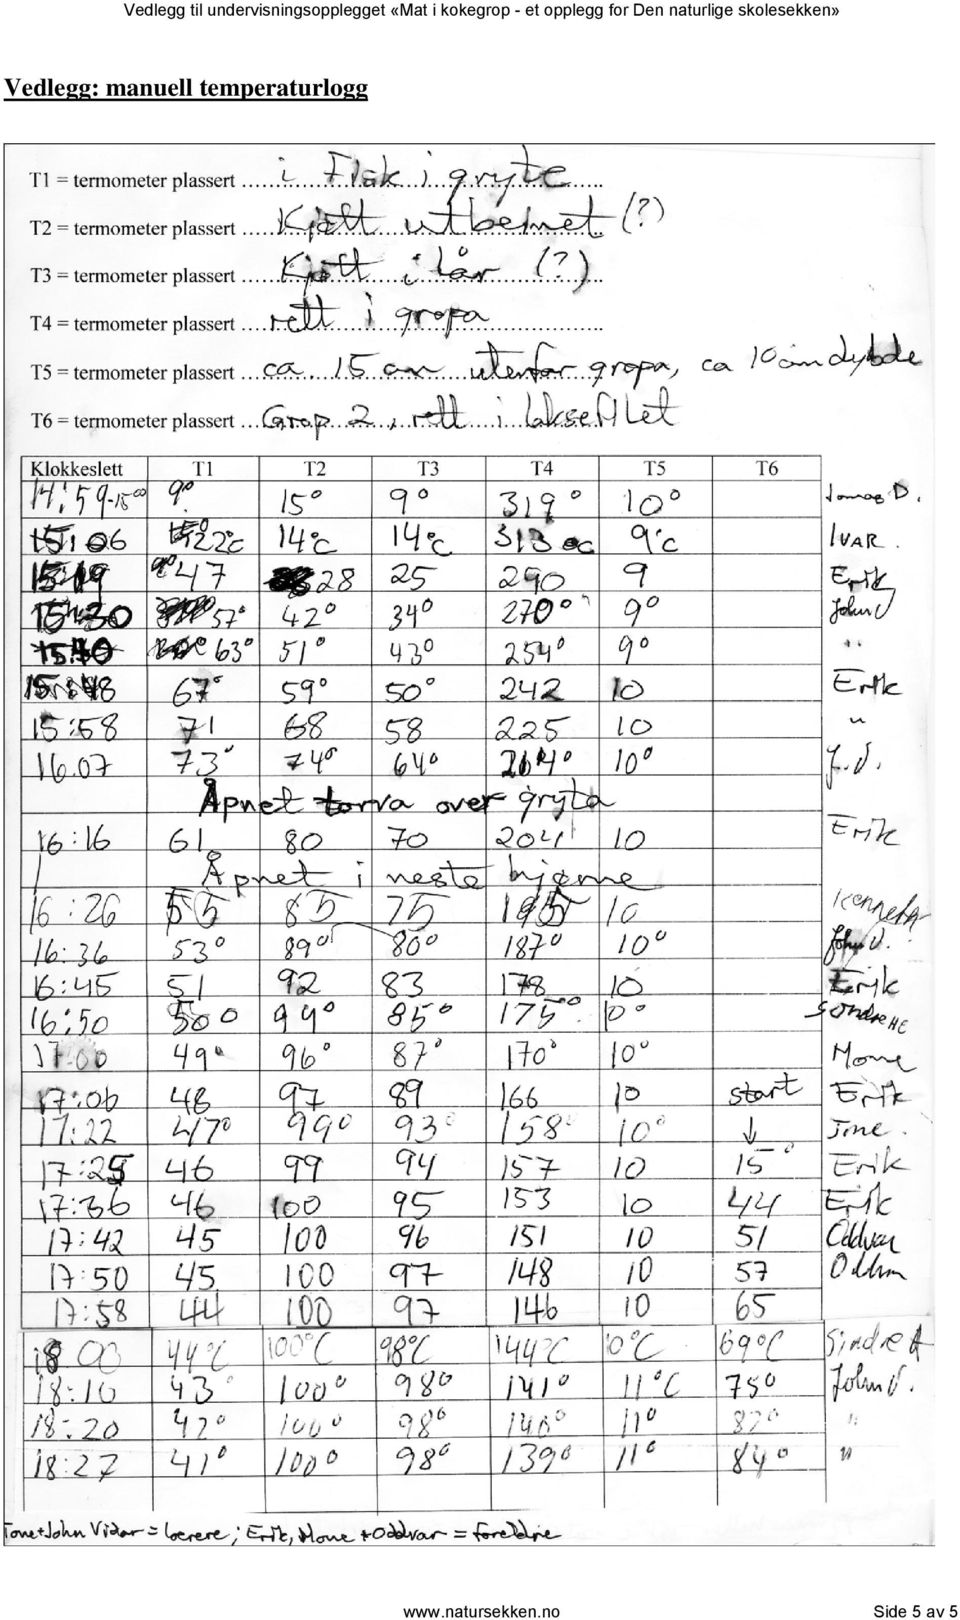 Vedlegg til undervisningsopplegget «Mat i kokegrop - et opplegg for Den naturlige skolesekken»
Vedlegg: manuell temperaturlogg
T1 = termometer plassert ... i Fisk i gryte
T2 = termometer plassert ... Kjøtt utbeinet (?)
T3 = termometer plassert ... Kjøtt i lår (?)
T4 = termometer plassert ... rett i gropa
T5 = termometer plassert ... ca. 15 cm utenfor gropa, ca 10 cm dybde
T6 = termometer plassert ... Grop 2, rett i laksefilet
Klokkeslett T1 T2 T3 T4 T5 T6
14:59-15⁰⁰ 9° 15° 9° 319° 10° D.
15:06 22°C 14°C 14°C 313°C 9°C IVAR.
15:19 47 28 25 290 9 Erik
15:30 57° 42° 34° 270° 9° John V
15:40 63° 51° 43° 254° 9° "
15:48 67° 59° 50° 242 10 Erik
15:58 71 68 58 225 10 "
16.07 73° 74° 64° 214° 10° J.V.
Åpnet torva over gryta
16:16 61 80 70 204 10 Erik
Åpnet i neste hjørne
16:26 55 85 75 195 10 Kenneth
16:36 53° 89° 80° 187° 10° John V.
16:45 51 92 83 178 10 Erik
16:50 50° 94° 85° 175° 10° Sondre HE
17:00 49° 96° 87° 170° 10° Mone
17:06 48 97 89 166 10 start Erik
17:22 47° 99° 93° 158° 10° ↓ Tone.
17:25 46 99 94 157 10 15° Erik
17:36 46 100 95 153 10 44 Erik
17:42 45 100 96 151 10 51 Oddvar
17:50 45 100 97 148 10 57 Oddvar
17:58 44 100 97 146 10 65
18 00 44°C 100°C 98°C 144°C 10°C 69°C Sindre A
18:10 43° 100° 98° 141° 11°C 75° John V.
18:20 42° 100° 98° 140° 11° 82° "
18:27 41° 100° 98° 139° 11° 84° "
Tone+John Vidar = lærere; Erik, Mone + Oddvar = foreldre
www.natursekken.no Side 5 av 5